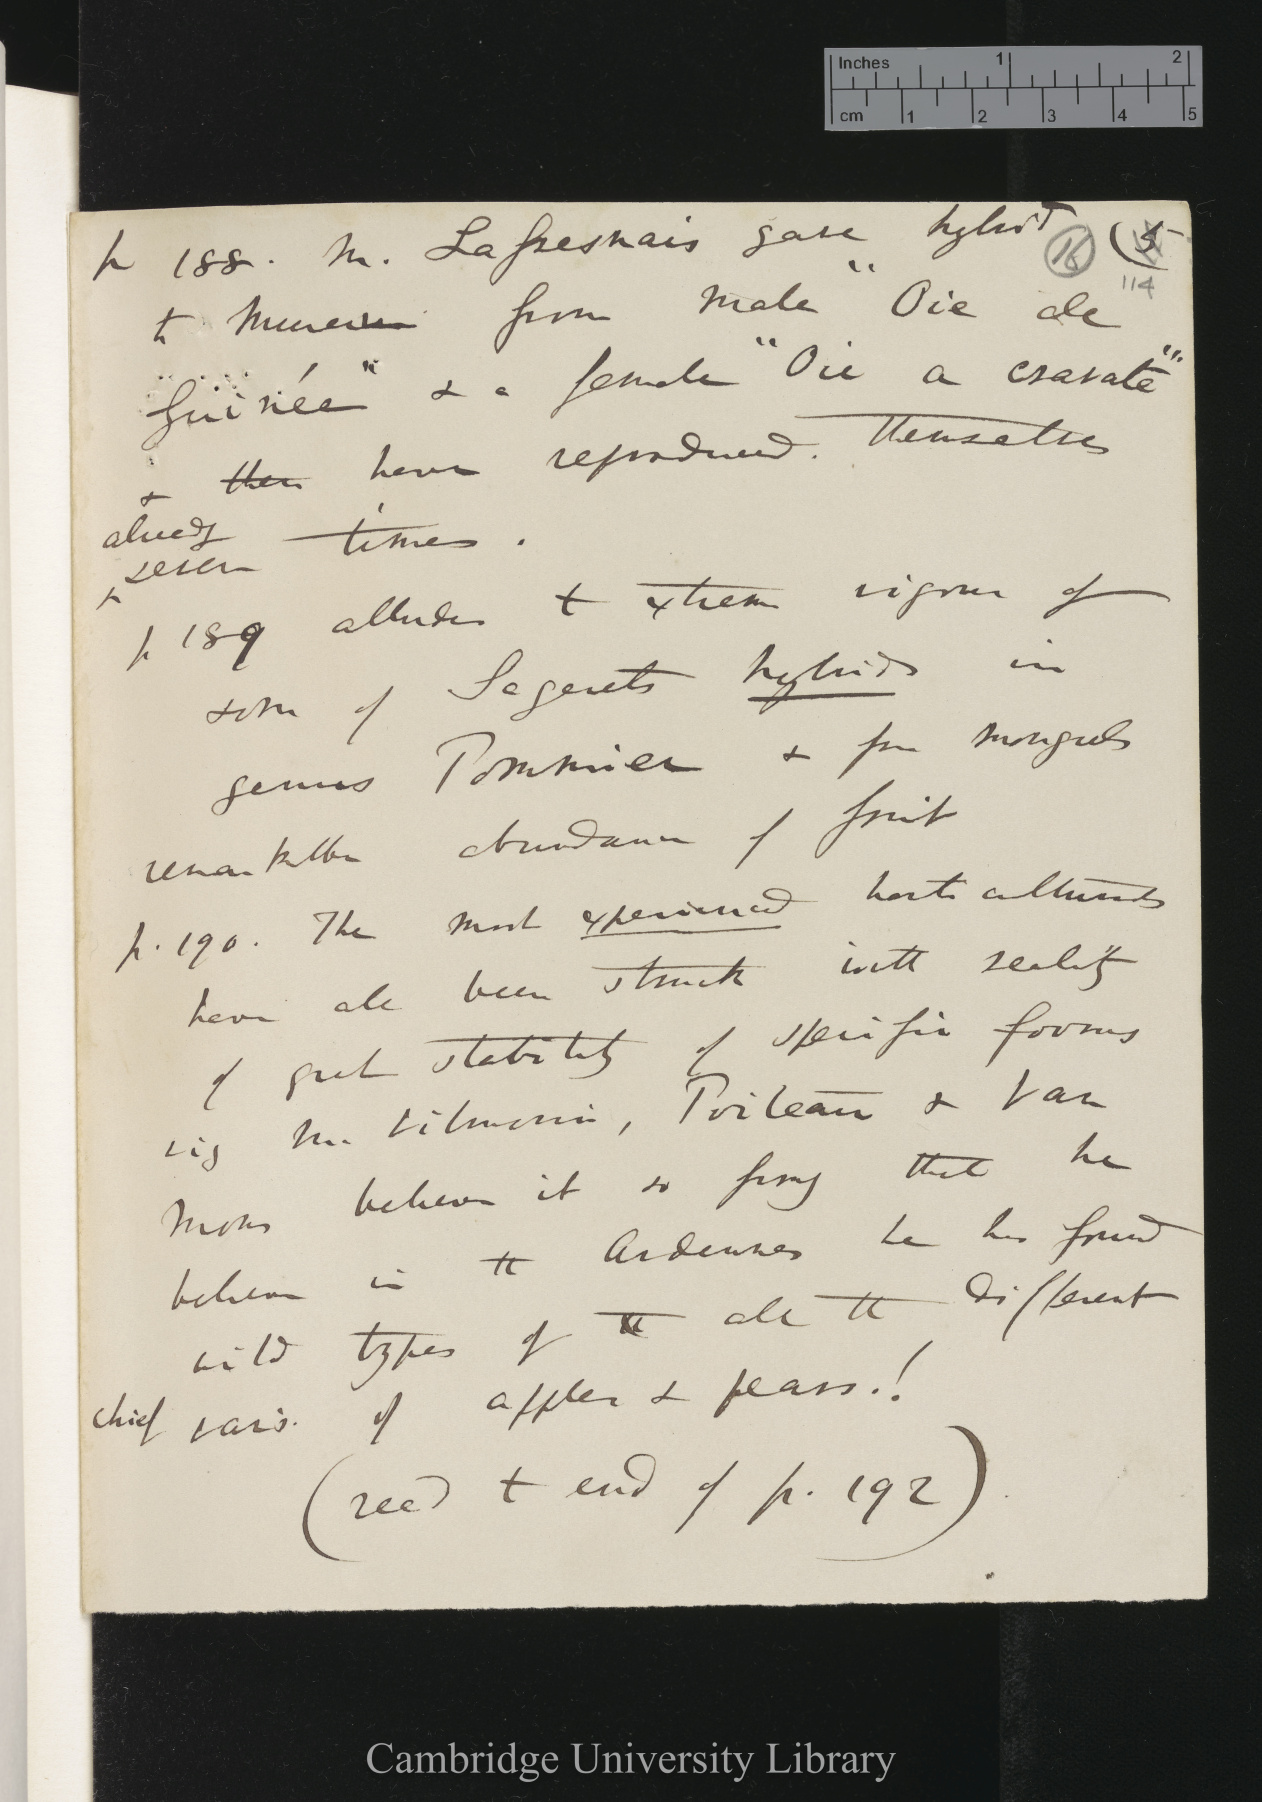 Inches 1 2
cm 1 2 3 4 5
p 188. M. Lafresnais gave hybrid (5
16
114
to Museum from male "Oie de
Guinée" & a female "Oie a cravate"
& then have reproduced themselves
already seven times.
p 189 alludes to extreme vigour of
some of Sagerets hybrids in
genus Pommier & for mongrels
remarkable abundance of fruit
p. 190. The most experienced horticulturists
have all been struck with reality
of great stability of specific forms
viz M. Vilmorin, Poiteau & Van
Mons believes it so firmly that he
believes in the Ardennes he has found
wild types of the all the different
chief vars. of apples & pears.!
(read to end of p. 192)
Cambridge University Library